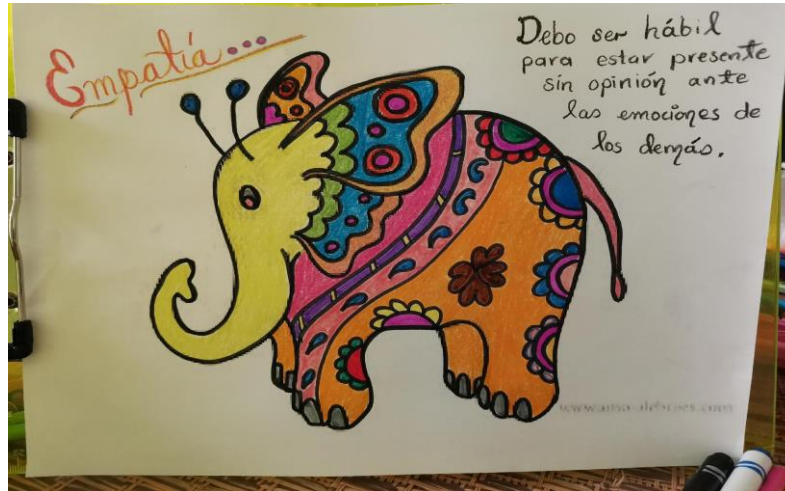 Empatía...
Debo ser hábil
para estar presente
sin opinión ante
las emociones de
los demás.